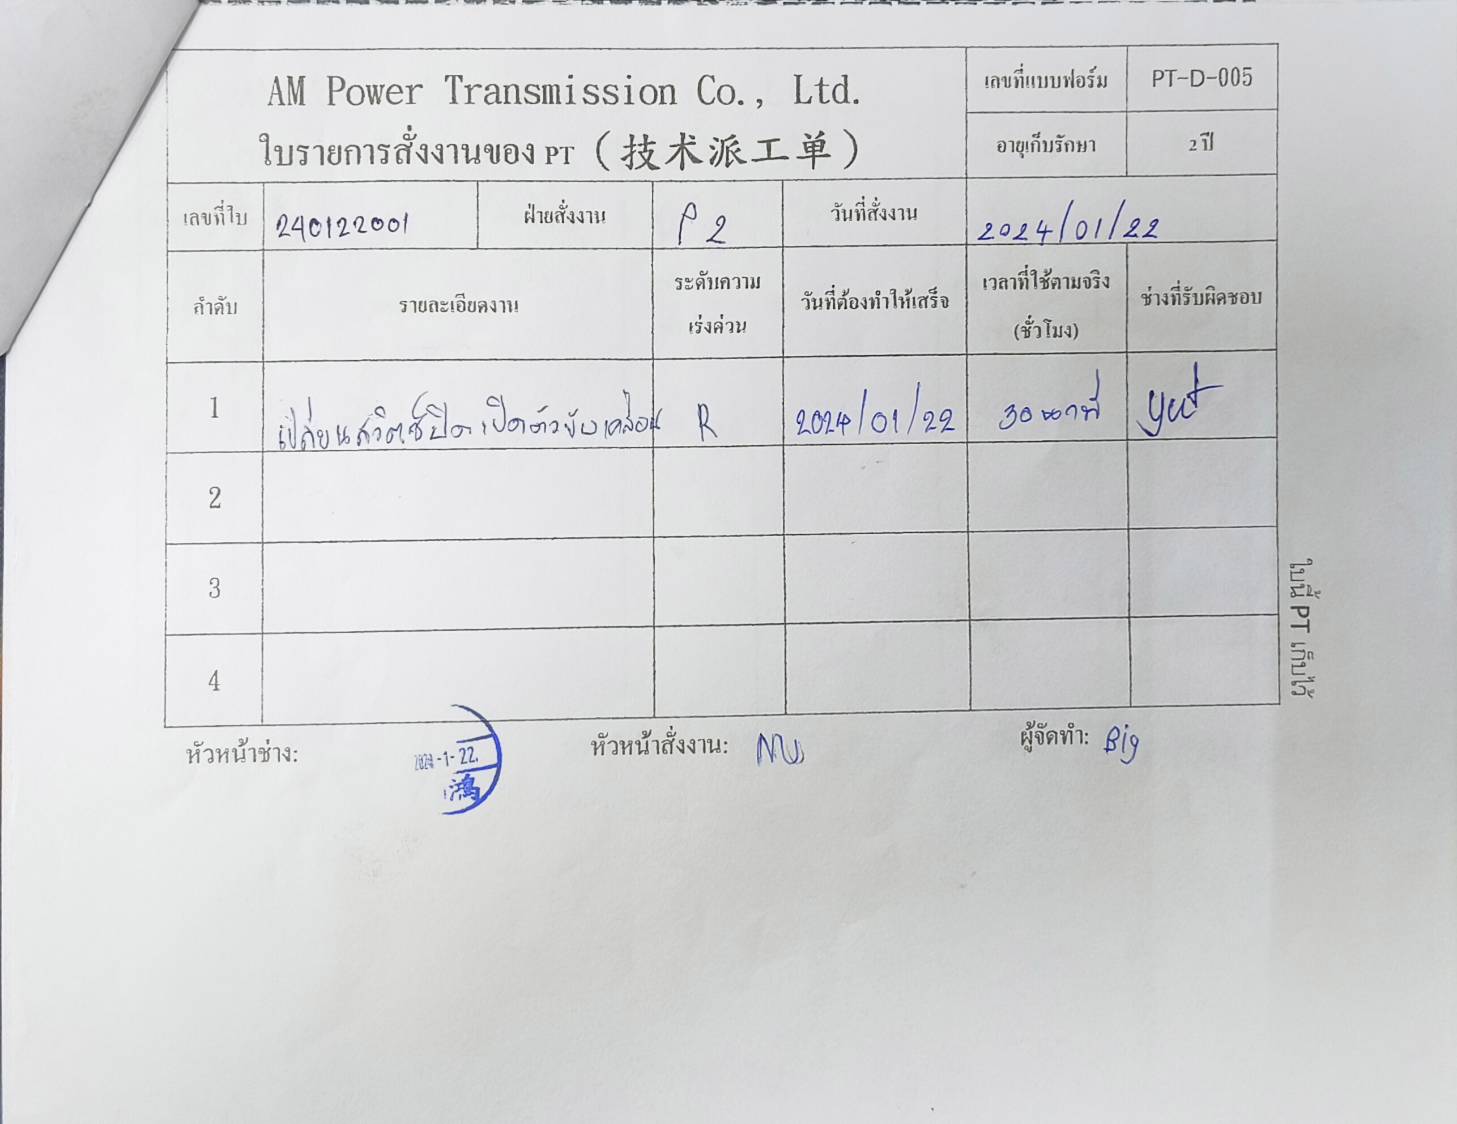 AM Power Transmission Co., Ltd.
ใบรายการสั่งงานของ PT (技术派工单)
เลขที่แบบฟอร์ม PT-D-005
อายุเก็บรักษา 2 ปี
เลขที่ใบ 240122001 ฝ่ายสั่งงาน P2 วันที่สั่งงาน 2024/01/22
ลำดับ รายละเอียดงาน ระดับความเร่งค่วน วันที่ต้องทำให้เสร็จ เวลาที่ใช้ตามจริง (ชั่วโมง) ช่างที่รับผิดชอบ
1 เปลี่ยนสวิตซ์ปิดเปิดตัวขับเคลื่อน R 2024/01/22 30 นาที yut
2
3
4
หัวหน้าช่าง: 2024-1-22. 鴻 หัวหน้าสั่งงาน: ผู้จัดทำ: Big
ใบนี้ PT เก็บไว้